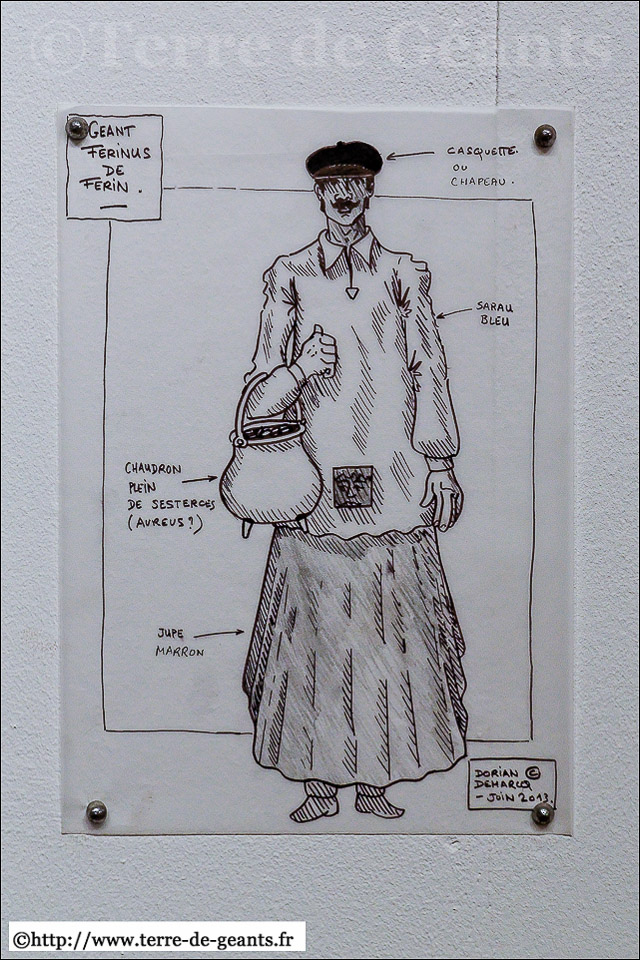 ©Terre de Géants
GEANT
FERINUS
DE
FERIN.
CASQUETTE.
OU
CHAPEAU.
SARAU
BLEU
CHAUDRON
PLEIN
DE SESTERCES
(AUREUS?)
JUPE
MARRON
DORIAN ©
DEMARCQ
- JUIN 2013.
©http://www.terre-de-geants.fr